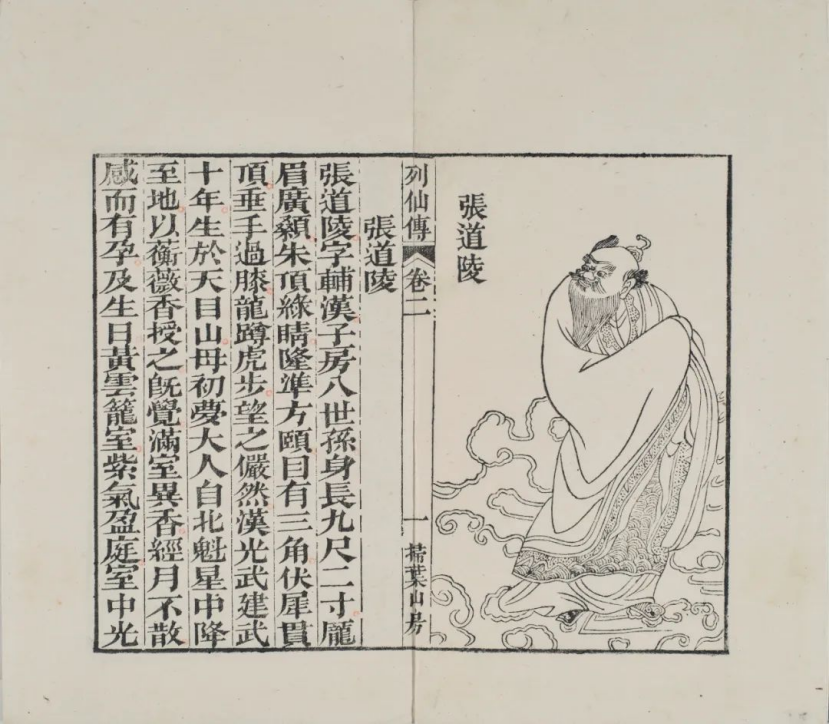 張道陵
列仙傳 卷二 一 掃葉山房
張道陵
張道陵字輔漢子房八世孫身長九尺二寸龐
眉廣顙朱頂綠睛隆準方頤目有三角伏犀貫
頂垂手過膝龍蹲虎步望之儼然漢光武建武
十年生於天目山母初夢大人自北魁星中降
至地以蘅薇香授之旣覺滿室異香經月不散
感而有孕及生日黃雲籠室紫氣盈庭室中光